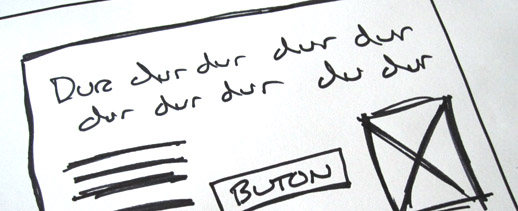 Dur dur dur dur dur
dur dur dur du dur
BUTON